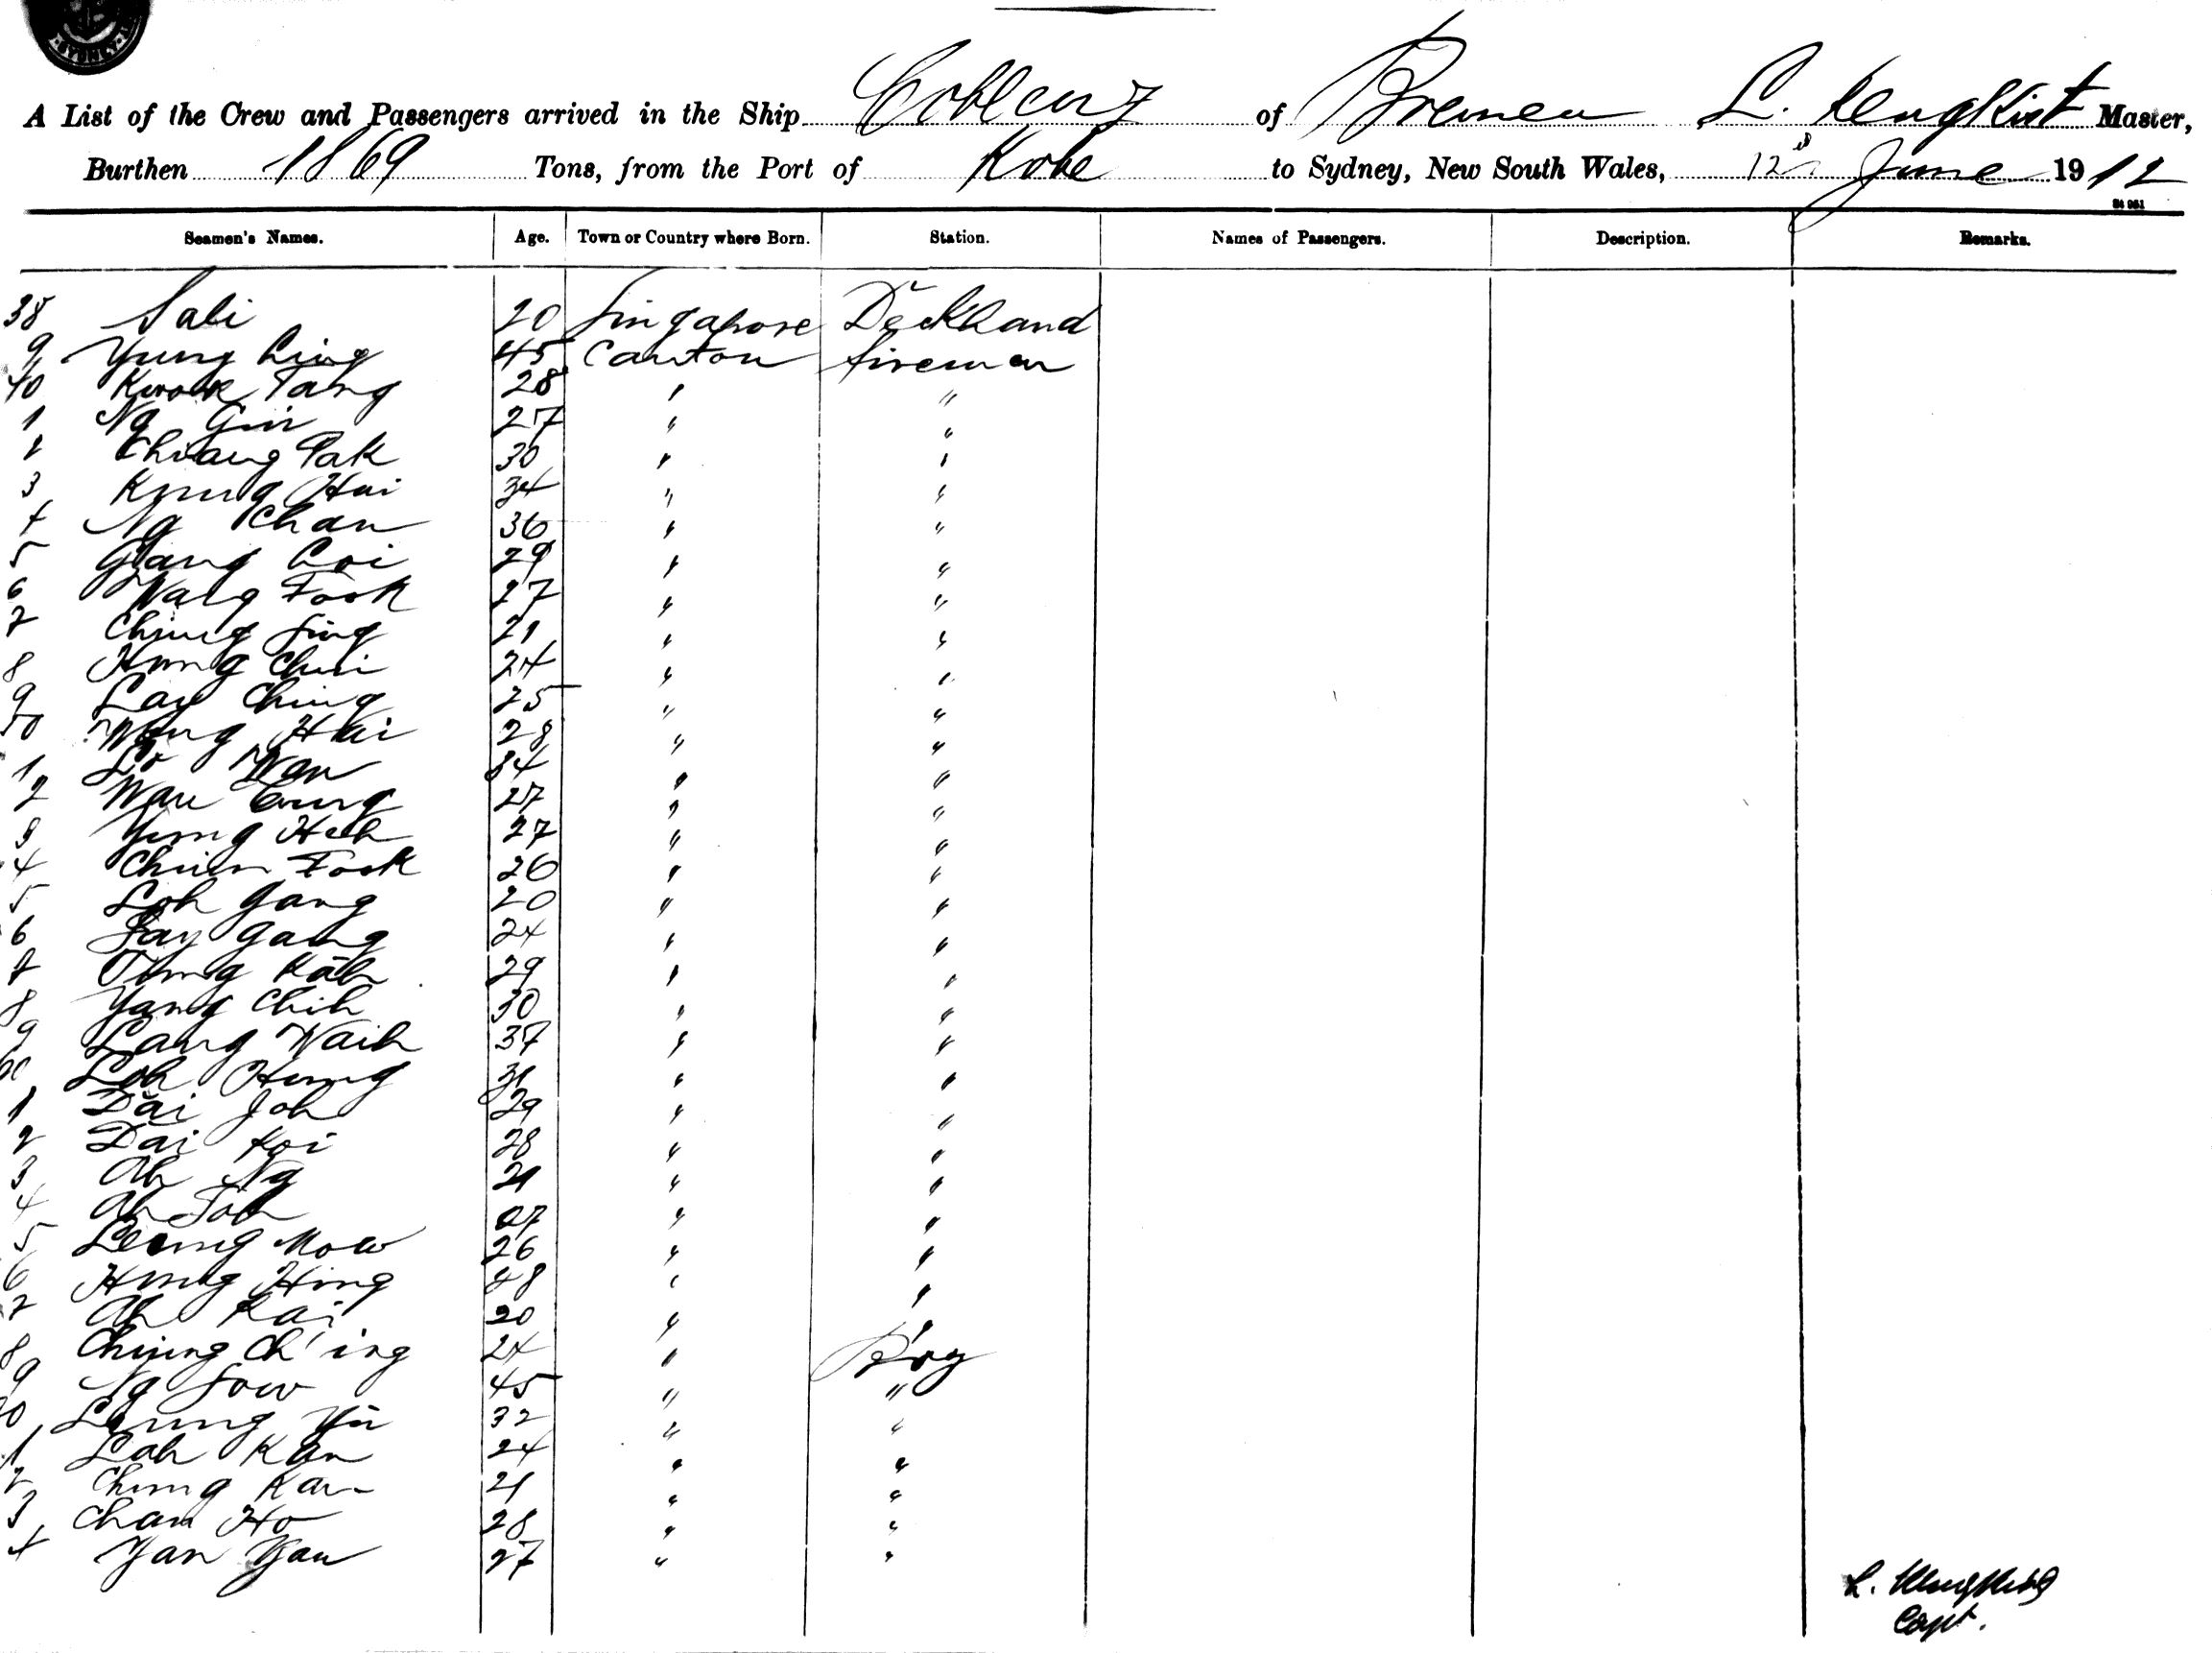 SYDNEY
A List of the Crew and Passengers arrived in the Ship Coblenz of Bremen L. Master,
Burthen 1869 Tons, from the Port of Kobe to Sydney, New South Wales, 12th June 1912
Seamen's Names. Age. Town or Country where Born. Station. Names of Passengers. Description. Remarks.
38 Sali 20 Singapore Deckhand
9 Yung Ling 45 Canton fireman
40 Kwook Tang 28 " "
1 Ng Gin 27 " "
2 Chiang Pak 30 " "
3 Kung Hai 34 " "
4 Ng Chan 36 " "
5 Gang Coi 29 " "
6 Wang Fook 27 " "
7 Chung Sing 21 " "
8 Hung Chui 24 " "
9 Lay Ching 25 " "
50 Wong Hai 28 " "
1 Lo Wan 34 " "
2 Wau 27 " "
3 Yung Heh 27 " "
4 Chien Fook 26 " "
5 Loh Gang 20 " "
6 Gang 24 " "
7 Tung Kah 29 " "
8 Yang Chih 30 " "
9 Lang Waih 37 " "
60 Loh Hung 31 " "
1 Dai Joh 29 " "
2 Dai Koi 28 " "
3 Ah Ng 21 " "
4 Ah Fah 27 " "
5 Leung Mow 26 " "
6 Hung Hing 48 " "
7 Ah Kai 20 " "
8 Chung Ch'ing 24 " Boy
9 Ng Sow 45 " "
70 Leung Yü 32 " "
1 Loh Kan 24 " "
2 Chung Kau 21 " "
3 Chan Ho 28 " "
4 Yan Yau 27 " "
L.
Capt.